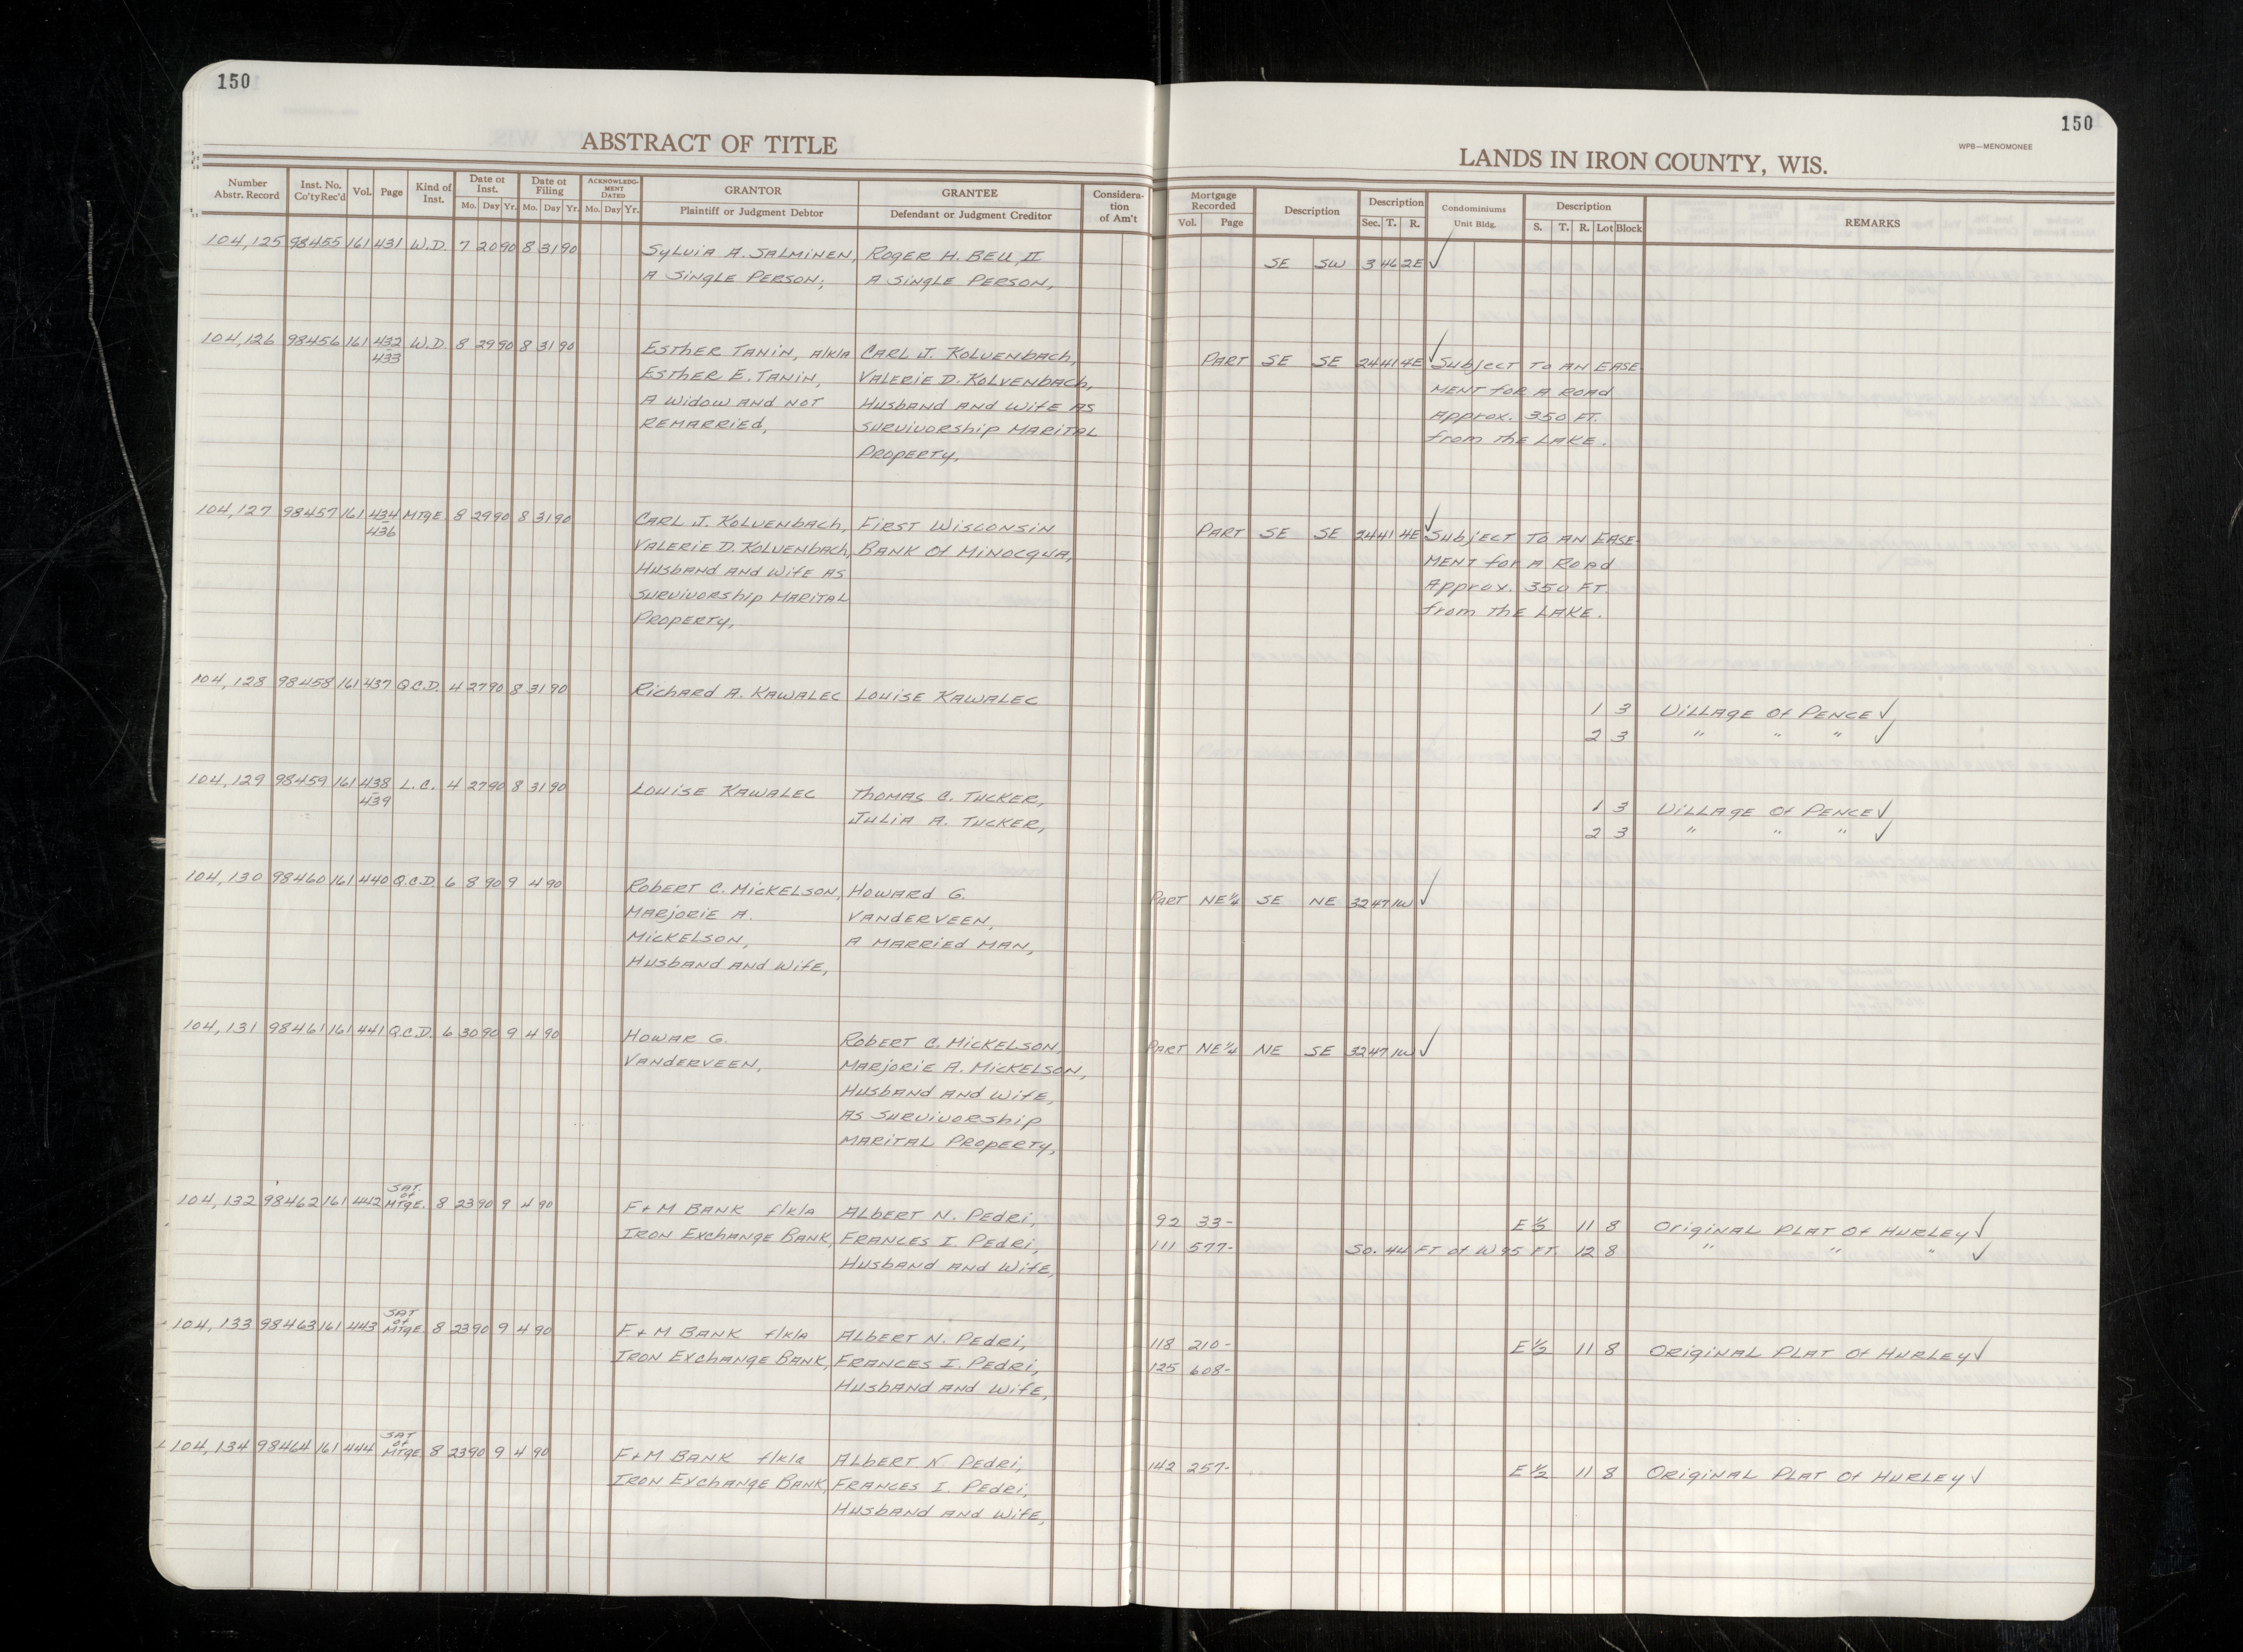 150
ABSTRACT OF TITLE
Number Abstr. Record
Inst. No. Co'ty Rec'd
Vol.
Page
Kind of Inst.
Date of Inst. Mo. Day Yr.
Date of Filing Mo. Day Yr.
ACKNOWLEDGMENT DATED Mo. Day Yr.
GRANTOR Plaintiff or Judgment Debtor
GRANTEE Defendant or Judgment Creditor
Consideration of Am't
150
WPB—MENOMONEE
LANDS IN IRON COUNTY, WIS.
Mortgage Recorded Vol. Page
Description
Description Sec. T. R.
Condominiums Unit Bldg.
Description S. T. R. Lot Block
REMARKS
104,125 98455 161 431 W.D. 7 20 90 8 31 90 Sylvia A. Salminen, Roger H. Bell, II
SE SW 3 46 2E ✓
A Single Person; A Single Person,
104,126 98456 161 432 W.D. 8 29 90 8 31 90 Esther Tanin, a/k/a Carl J. Kolvenbach, Part SE SE 24 41 4E ✓ Subject To An Ease-
433 Esther E. Tanin, Valerie D. Kolvenbach, ment for a Road
A Widow and not Husband and Wife As Approx. 350 Ft.
Remarried, Survivorship Marital from the Lake.
Property,
104,127 98457 161 434 Mtge. 8 29 90 8 31 90 Carl J. Kolvenbach, First Wisconsin Part SE SE 24 41 4E ✓ Subject To An Ease-
436 Valerie D. Kolvenbach, Bank of Minocqua, ment for a Road
Husband and Wife As Approx. 350 Ft.
Survivorship Marital from the Lake.
Property,
104,128 98458 161 437 Q.C.D. 4 27 90 8 31 90 Richard A. Kawalec Louise Kawalec
1 3 Village of Pence ✓
2 3 " " " ✓
104,129 98459 161 438 L.C. 4 27 90 8 31 90 Louise Kawalec Thomas C. Tucker,
439 Julia A. Tucker, 1 3 Village of Pence ✓
2 3 " " " ✓
104,130 98460 161 440 Q.C.D. 6 8 90 9 4 90 Robert C. Mickelson, Howard G. Part NE¼ SE NE 32 47 1W ✓
Marjorie A. Vanderveen,
Mickelson, A Married Man,
Husband and Wife,
104,131 98461 161 441 Q.C.D. 6 30 90 9 4 90 Howar G. Robert C. Mickelson, Part NE¼ NE SE 32 47 1W ✓
Vanderveen, Marjorie A. Mickelson,
Husband and Wife,
As Survivorship
Marital Property,
104,132 98462 161 442 Sat. of Mtge. 8 23 90 9 4 90 F+M Bank f/k/a Albert N. Pedri, 92 33- E ½ 11 8 Original Plat of Hurley ✓
Iron Exchange Bank, Frances I. Pedri, 111 577- So. 44 Ft of W 95 Ft. 12 8 " " " ✓
Husband and Wife,
104,133 98463 161 443 Sat of Mtge. 8 23 90 9 4 90 F+M Bank f/k/a Albert N. Pedri, 118 210- E ½ 11 8 Original Plat of Hurley ✓
Iron Exchange Bank, Frances I. Pedri, 125 608-
Husband and Wife,
104,134 98464 161 444 Sat of Mtge. 8 23 90 9 4 90 F+M Bank f/k/a Albert N. Pedri, 142 257- E ½ 11 8 Original Plat of Hurley ✓
Iron Exchange Bank, Frances I. Pedri,
Husband and Wife,